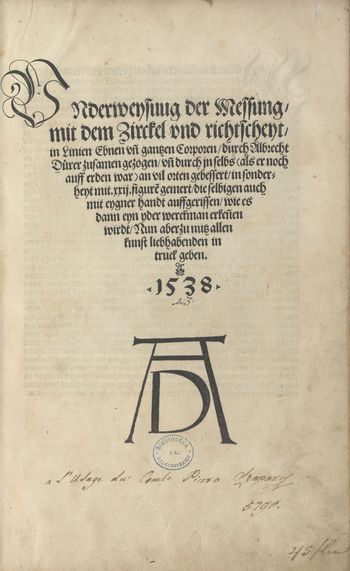 VNderweysuug der Messung/
mit dem Zirckel vnd richtscheyt/
in Linien Ebnen vñ gantzen Corporen/durch Albrecht
Dürer zusamen gezogen/vñ durch jn selbs (als er noch
auff erden war) an vil orten gebessert/in sonder-
heyt mit.xxij.figurẽ gemert/die selbigen auch
mit eygner handt auffgerissen/wie es
dann eyn yder werckman erkeñen
wirdt/Nun aber zu nutz allen
kunst liebhabenden in
truck geben.
1538
AD
BIBLIOTECA
a l'usage du Comte Pierre